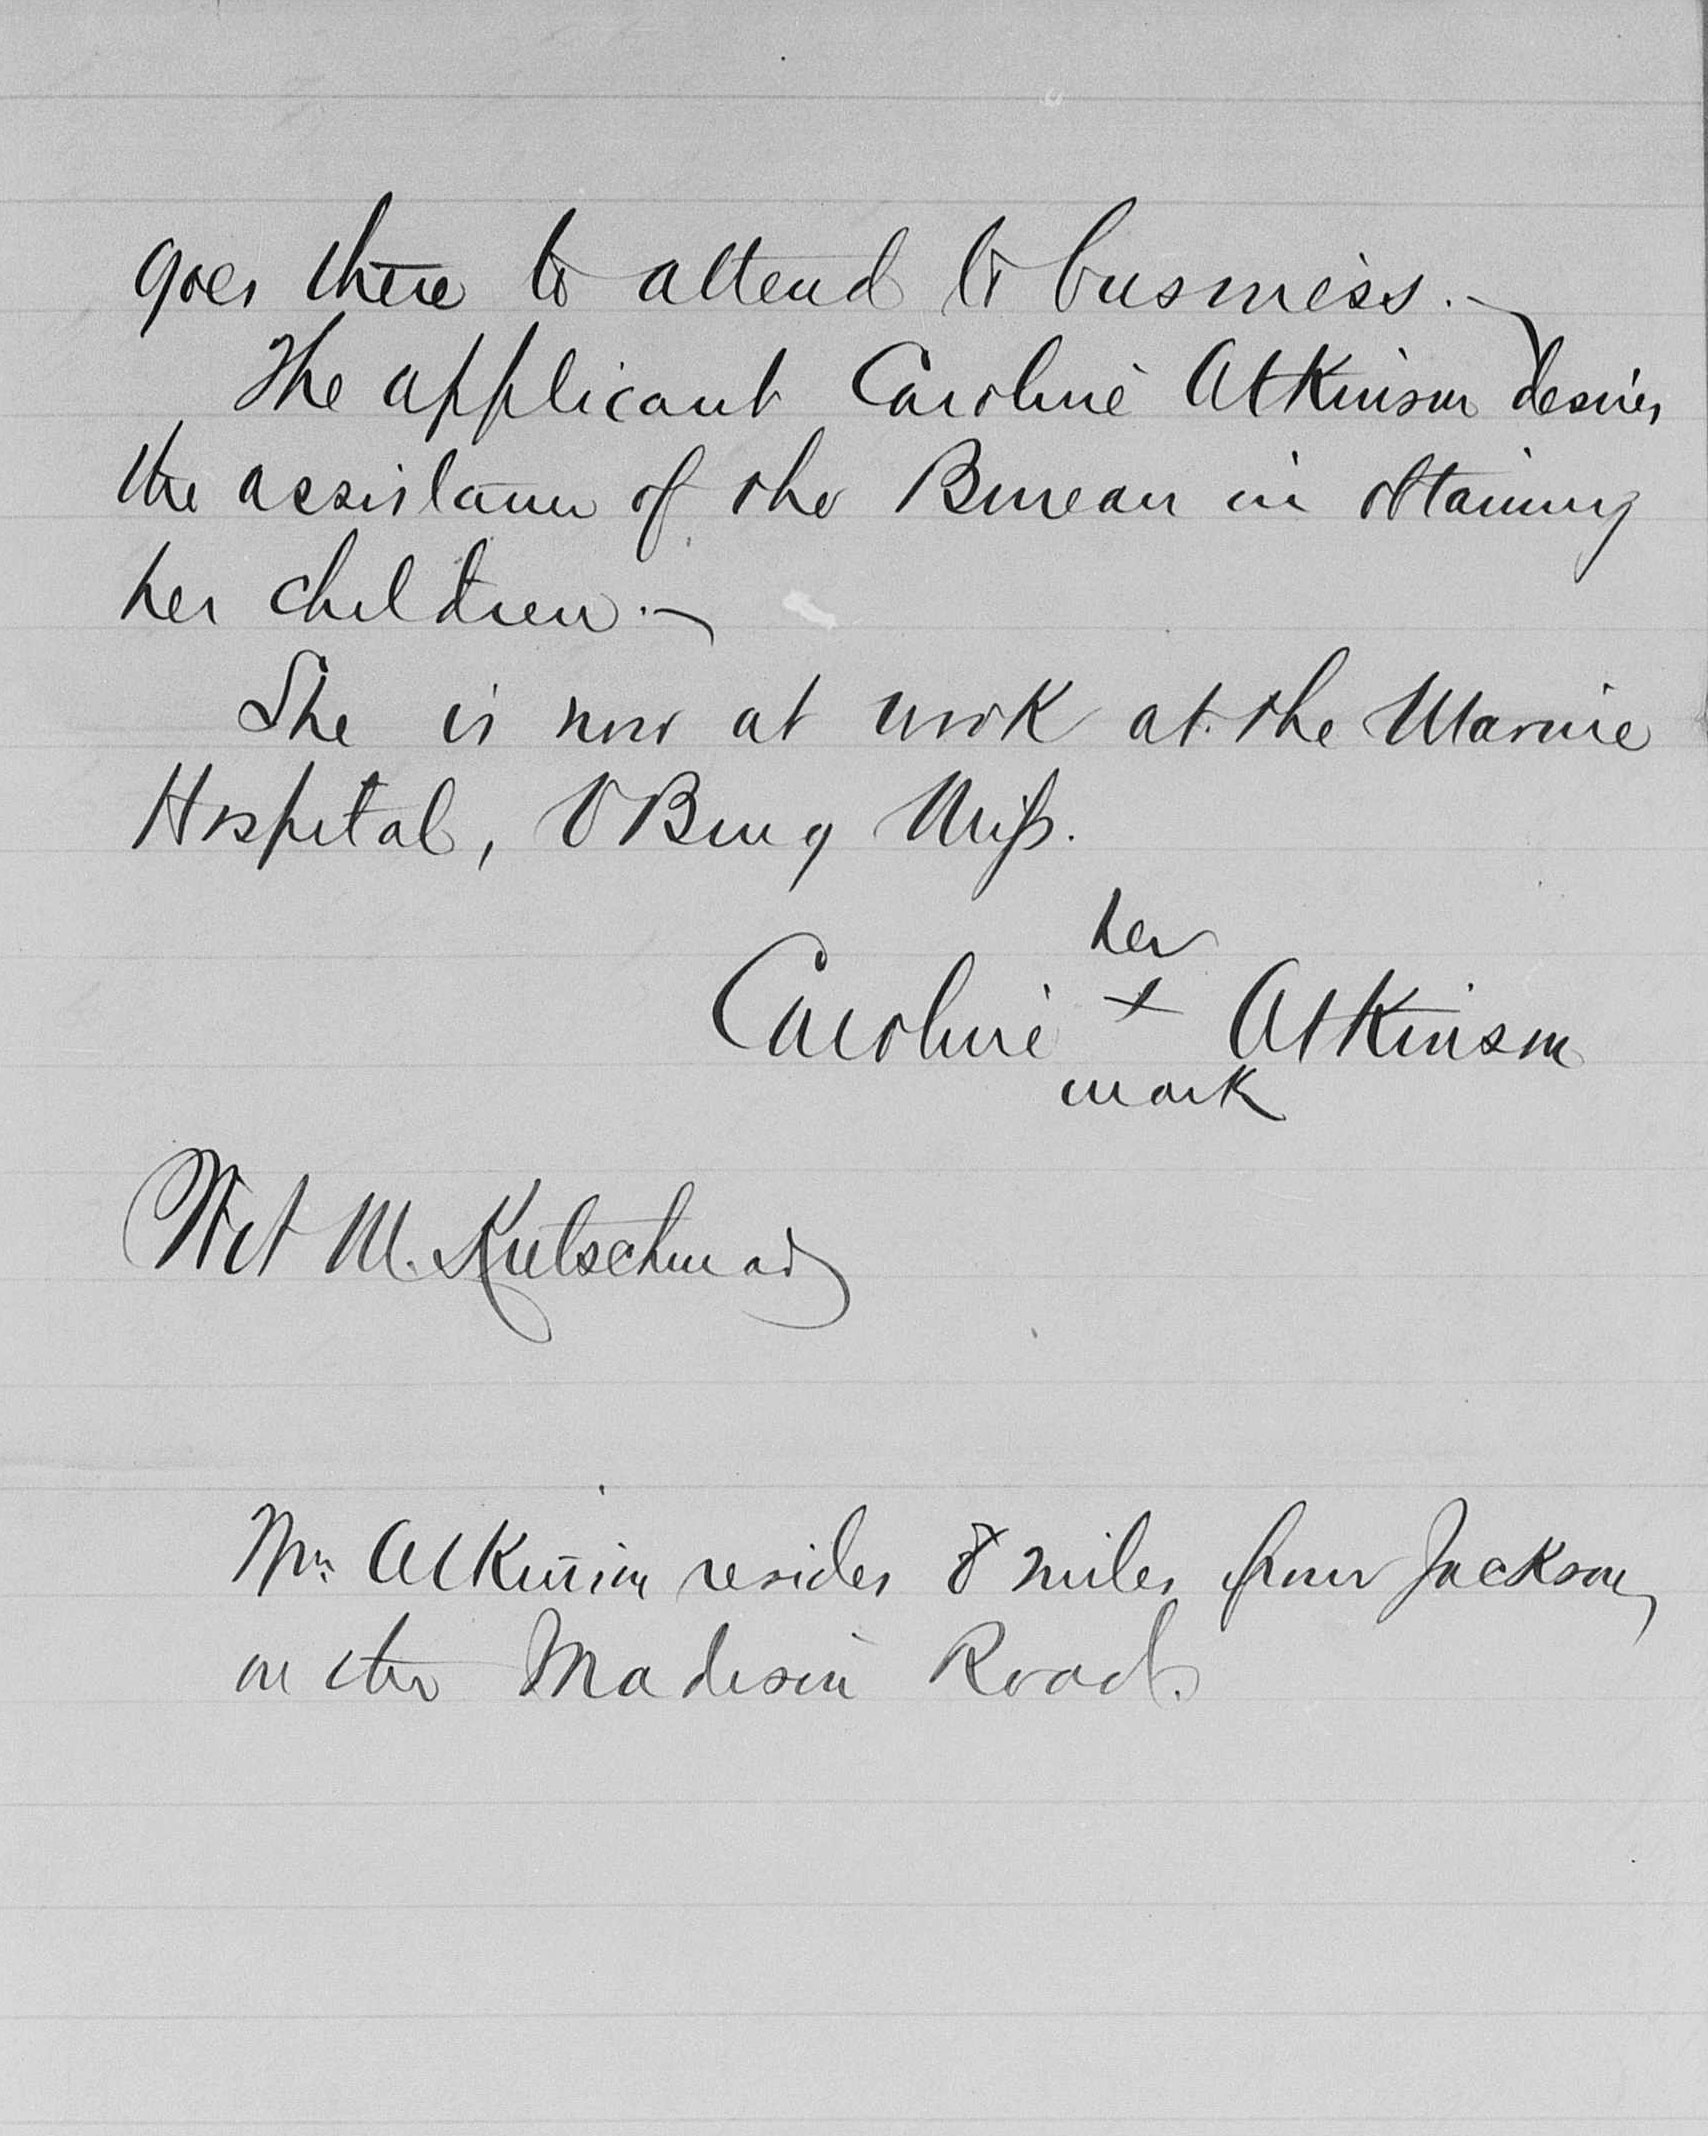 goes there to attend to business. —
The applicant Caroline Atkinson desires
the assistance of the Bureau in obtaining
her children. —
She is now at work at the Marine
Hospital, VBurg Miss.
her
Caroline + Atkinson
mark
Wit M. Kretschmar
Mr. Atkinson resides 8 miles from Jackson,
on the Madison Road.